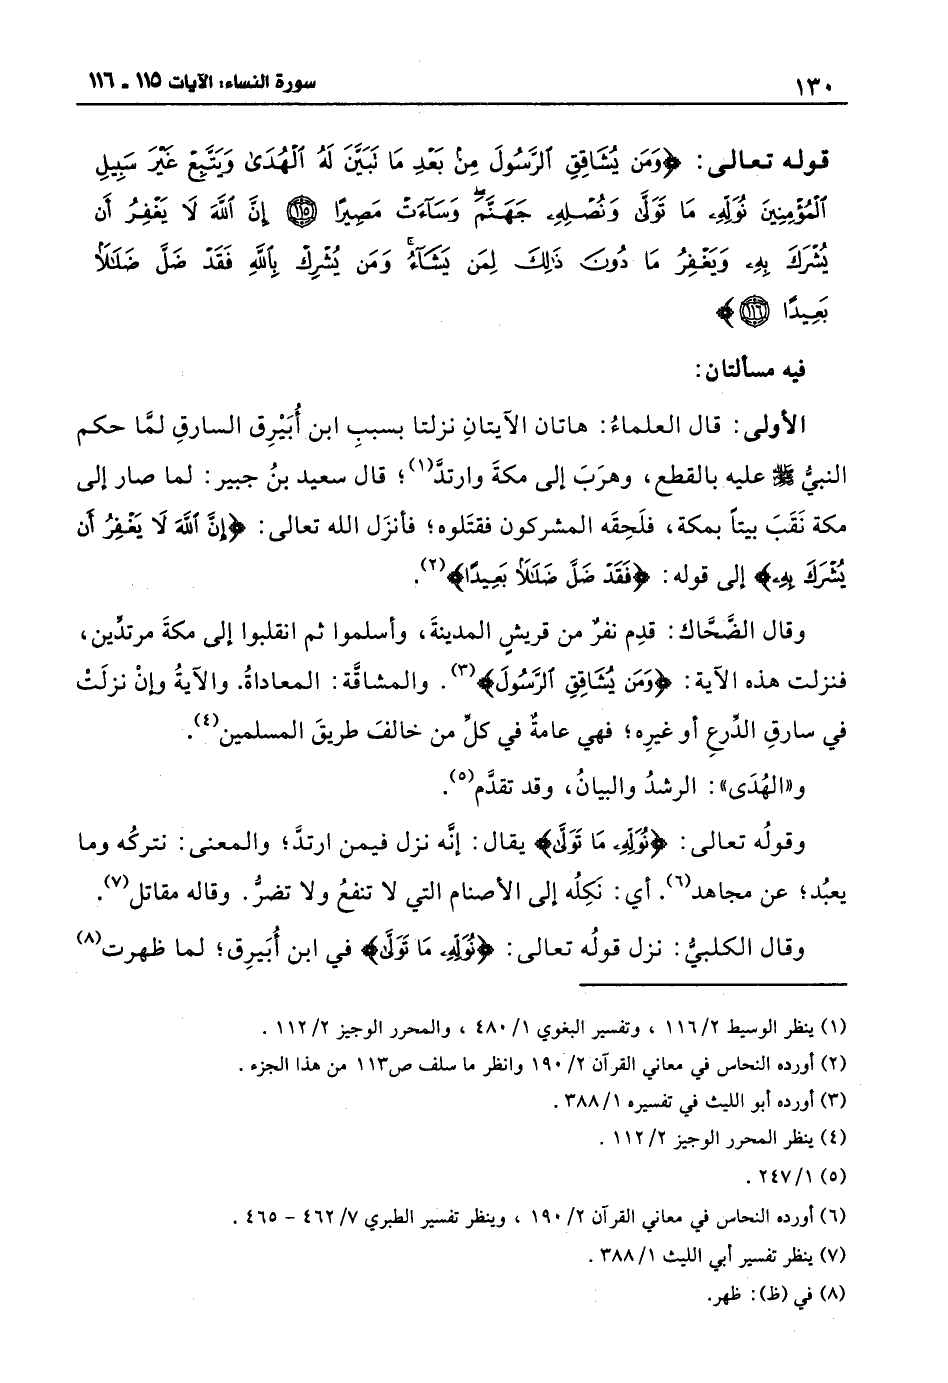 ١٣٠ سورة النساء: الآيات ١١٥ - ١١٦
قوله تعالى: ﴿وَمَن يُشَاقِقِ ٱلرَّسُولَ مِنۢ بَعْدِ مَا تَبَيَّنَ لَهُ ٱلْهُدَىٰ وَيَتَّبِعْ غَيْرَ سَبِيلِ
ٱلْمُؤْمِنِينَ نُوَلِّهِۦ مَا تَوَلَّىٰ وَنُصْلِهِۦ جَهَنَّمَ ۖ وَسَآءَتْ مَصِيرًا ١١٥ إِنَّ ٱللَّهَ لَا يَغْفِرُ أَن
يُشْرَكَ بِهِۦ وَيَغْفِرُ مَا دُونَ ذَٰلِكَ لِمَن يَشَآءُ ۚ وَمَن يُشْرِكْ بِٱللَّهِ فَقَدْ ضَلَّ ضَلَٰلًۢا
بَعِيدًا ١١٦﴾
فيه مسألتان:
الأولى: قال العلماءُ: هاتان الآيتانِ نزلتا بسببِ ابن أُبَيْرِق السارقِ لمَّا حكم
النبيُّ ﷺ عليه بالقطع، وهرَبَ إلى مكةَ وارتدَّ(١)؛ قال سعيد بنُ جبير: لما صار إلى
مكة نَقَبَ بيتاً بمكة، فلَحِقَه المشركون فقتَلوه؛ فأنزَل الله تعالى: ﴿إِنَّ ٱللَّهَ لَا يَغْفِرُ أَن
يُشْرَكَ بِهِۦ﴾ إلى قوله: ﴿فَقَدْ ضَلَّ ضَلَٰلًۢا بَعِيدًا﴾(٢).
وقال الضَّحَّاك: قدِم نفرٌ من قريشٍ المدينةَ، وأسلموا ثم انقلبوا إلى مكةَ مرتدِّين،
فنزلت هذه الآية: ﴿وَمَن يُشَاقِقِ ٱلرَّسُولَ﴾(٣). والمشاقَّة: المعاداةُ. والآيةُ وإنْ نزلَتْ
في سارقِ الدِّرعِ أو غيرِه؛ فهي عامةٌ في كلِّ من خالفَ طريقَ المسلمين(٤).
و«الهُدَى»: الرشدُ والبيانُ، وقد تقدَّم(٥).
وقولُه تعالى: ﴿نُوَلِّهِۦ مَا تَوَلَّىٰ﴾ يقال: إنَّه نزل فيمن ارتدَّ؛ والمعنى: نتركُه وما
يعبُد؛ عن مجاهد(٦). أي: نَكِلُه إلى الأصنام التي لا تنفعُ ولا تضرُّ. وقاله مقاتل(٧).
وقال الكلبيُّ: نزل قولُه تعالى: ﴿نُوَلِّهِۦ مَا تَوَلَّىٰ﴾ في ابن أُبَيرِق؛ لما ظهرت(٨)
(١) ينظر الوسيط ١١٦/٢ ، وتفسير البغوي ٤٨٠/١ ، والمحرر الوجيز ١١٢/٢ .
(٢) أورده النحاس في معاني القرآن ١٩٠/٢ وانظر ما سلف ص١١٣ من هذا الجزء .
(٣) أورده أبو الليث في تفسيره ٣٨٨/١ .
(٤) ينظر المحرر الوجيز ١١٢/٢ .
(٥) ٢٤٧/١ .
(٦) أورده النحاس في معاني القرآن ١٩٠/٢ ، وينظر تفسير الطبري ٤٦٢/٧ - ٤٦٥ .
(٧) ينظر تفسير أبي الليث ٣٨٨/١ .
(٨) في (ظ): ظهر.